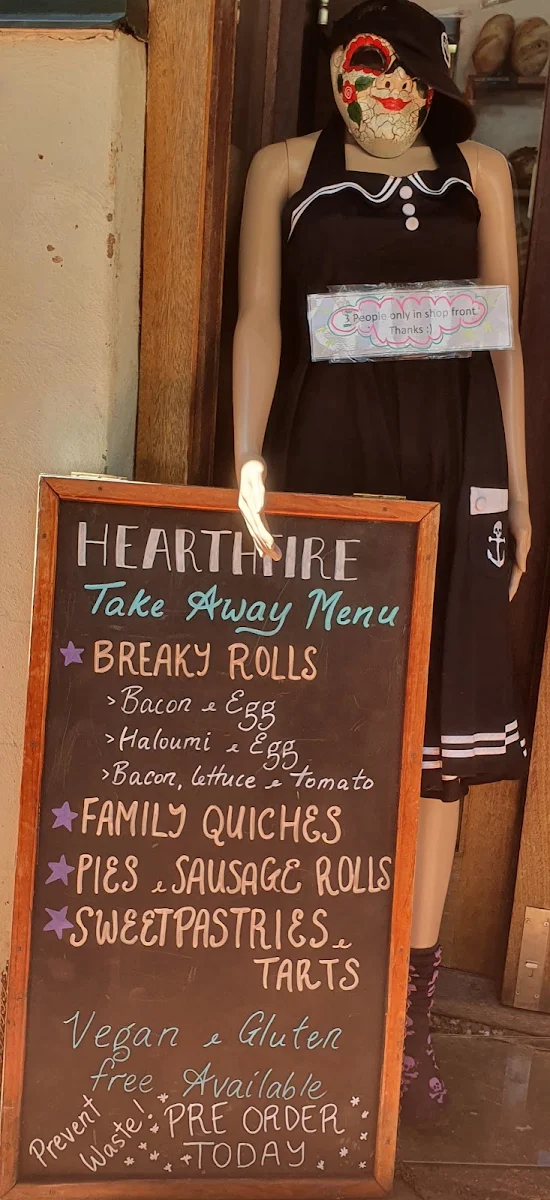 3 People only in shop front.
Thanks :)
HEARTHFIRE
Take Away Menu
BREAKY ROLLS
>Bacon e Egg
>Haloumi e Egg
>Bacon, lettuce e tomato
FAMILY QUICHES
PIES e SAUSAGE ROLLS
SWEETPASTRIES e
TARTS
Vegan e Gluten
free Available
Prevent
Waste!
PRE ORDER
TODAY